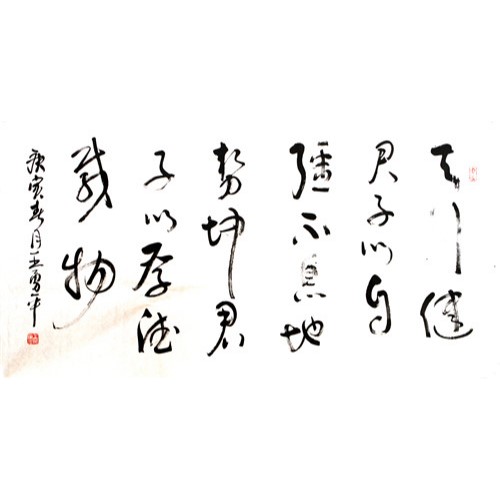 天行健
君子以自
强不息地
势坤君
子以厚德
载物
庚寅春月王勇平